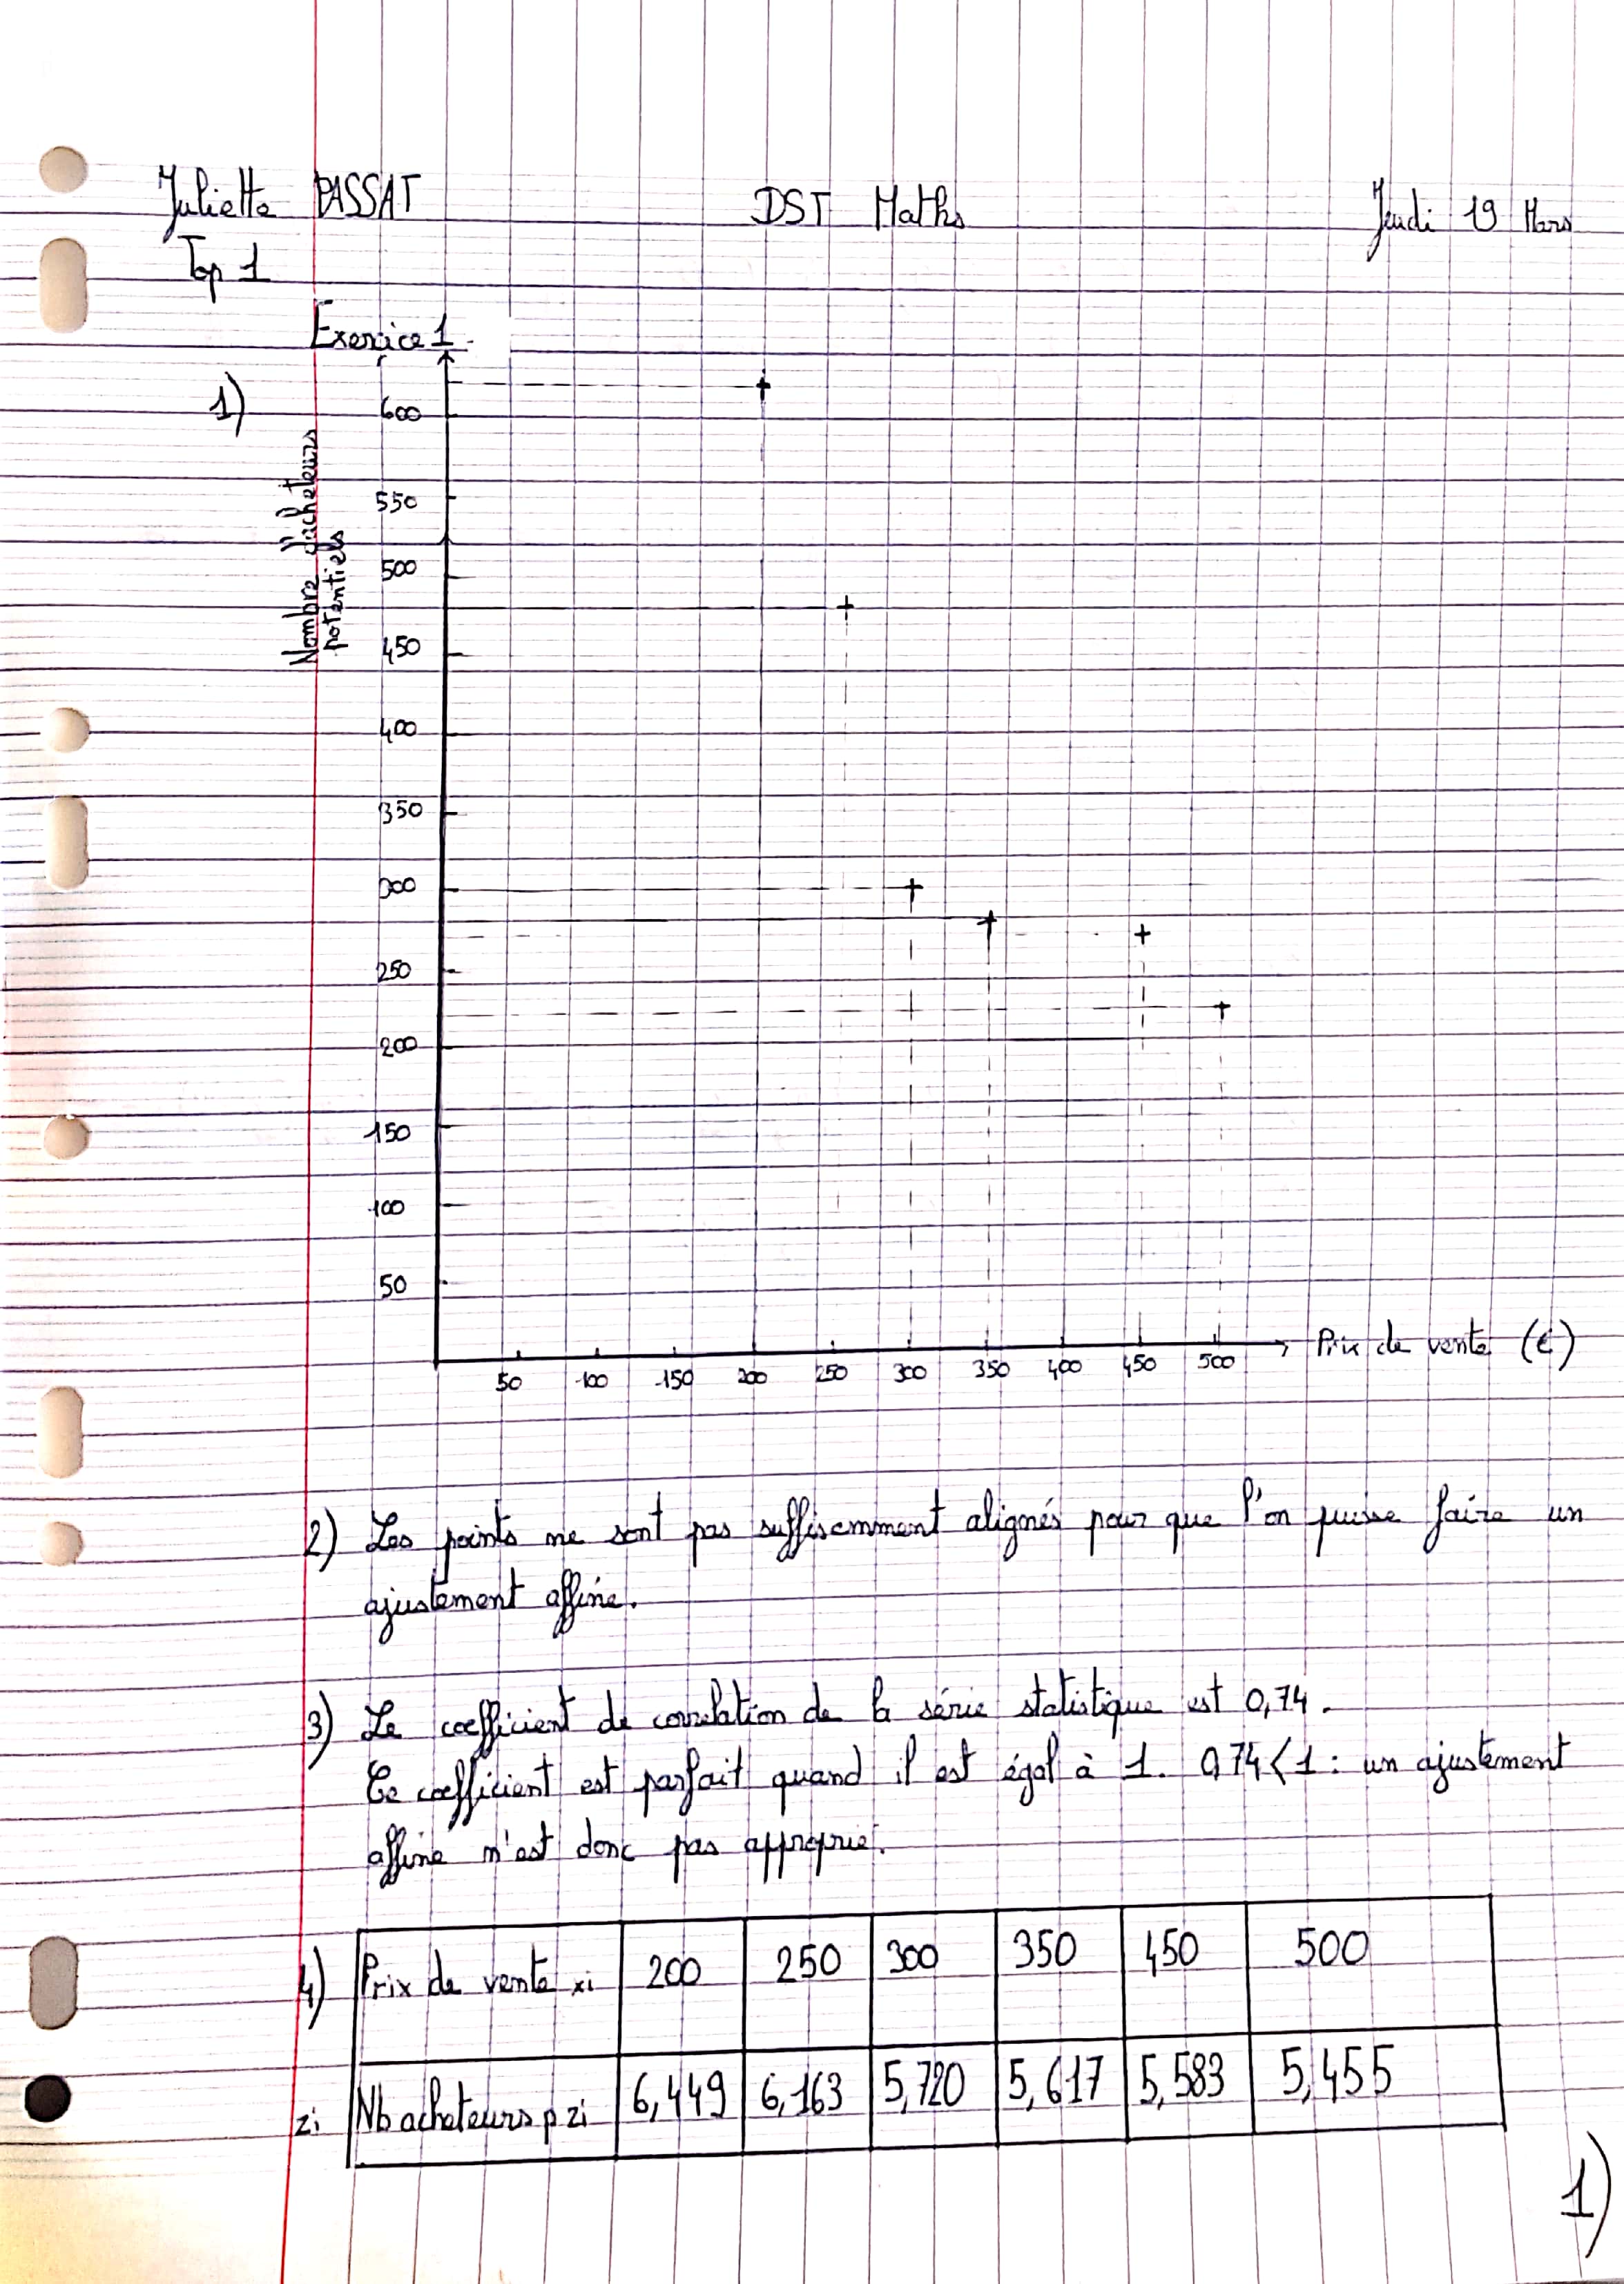 Juliette PASSAT DST Maths Jeudi 19 Mars
Top 1
Exercice 1
1)
Nombre d'acheteurs
potentiels
600
550
500
450
400
350
300
250
200
150
100
50
50 100 150 200 250 300 350 400 450 500 Prix de vente (€)
2) Les points ne sont pas suffisemment alignés pour que l'on puisse faire un
ajustement affine.
3) Le coefficient de corrélation de la série statistique est 0,74.
Ce coefficient est parfait quand il est égal à 1. 0,74<1 : un ajustement
affine n'est donc pas approprié.
4) Prix de vente xi 200 250 300 350 450 500
zi Nb acheteurs p zi 6,449 6,163 5,720 5,617 5,583 5,455
1)